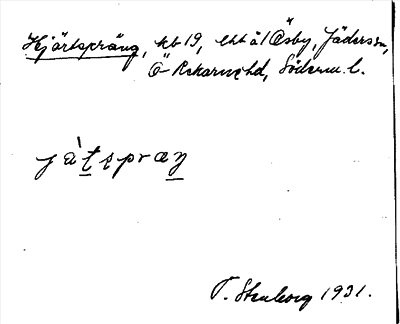 Hjärtspräng, kb 19, eht å l Össby, Jäders sn,
Ö Rekarne hd, Söderm. l.
jà't̠spræŋ̠
T. Stenborg 1931.